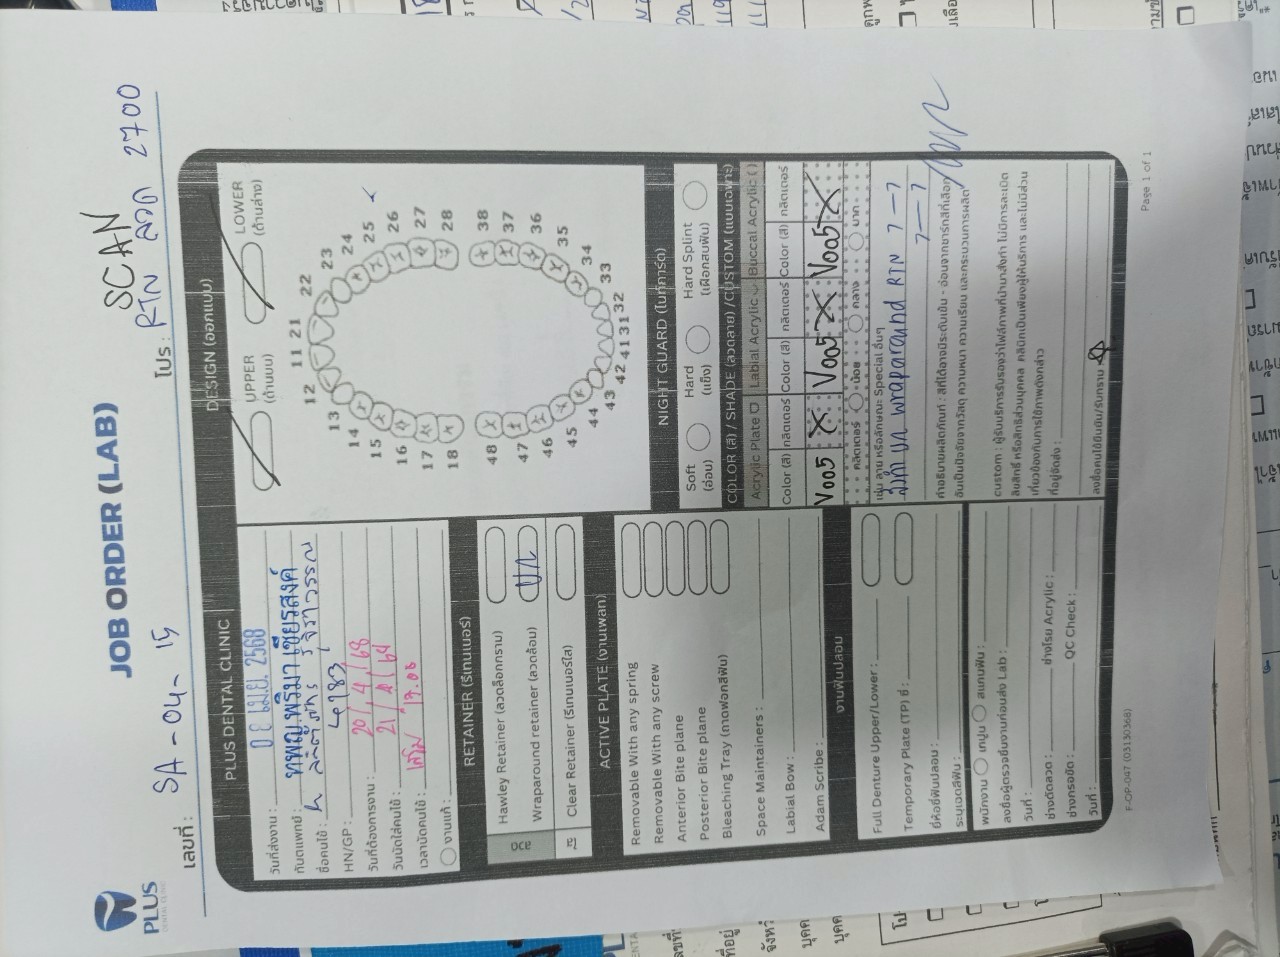 PLUS
DENTAL CLINIC
JOB ORDER (LAB)
เลขที่ : SA - 04 - 15
SCAN
โปร : RTN ลวด 2700
PLUS DENTAL CLINIC
วันที่ส่งงาน : 0 8 เม.ย. 2568
ทันตแพทย์ : ทพญ.พริมา เขียรสงค์
ชื่อคนไข้ :
HN/GP : 4983
วันที่ต้องการงาน : 20 / 4 / 68
วันนัดใส่คนไข้ : 21 / 4 / 68
เวลานัดคนไข้ : 17.00
งานแก้ :
RETAINER (รีเทนเนอร์)
ลวด
Hawley Retainer (ลวดล็อกกราม)
Wraparound retainer (ลวดล้อม) บน
ใส
Clear Retainer (รีเทนเนอร์ใส)
ACTIVE PLATE (งานเพลท)
Removable With any spring
Removable With any screw
Anterior Bite plane
Posterior Bite plane
Bleaching Tray (ถาดฟอกสีฟัน)
Space Maintainers :
Labial Bow :
Adam Scribe :
งานฟันปลอม
Full Denture Upper/Lower :
Temporary Plate (TP) ซี่ :
ยี่ห้อซี่ฟันปลอม :
ระบุเฉดสีฟัน :
พนักงาน เทปูน สแกนฟัน :
ลงชื่อผู้ตรวจชิ้นงานก่อนส่ง Lab :
วันที่ :
ช่างดัดลวด : ช่างโรย Acrylic :
ช่างกรอขัด : QC Check :
วันที่ :
DESIGN (ออกแบบ)
UPPER (ด้านบน)
LOWER (ด้านล่าง)
12 11 21 22
13 23
14 24
15 25
16 26
17 27
18 28
48 38
47 37
46 36
45 35
44 34
43 33
42 41 31 32
NIGHT GUARD (ไนท์การ์ด)
Soft (อ่อน)
Hard (แข็ง)
Hard Splint (เฝือกสบฟัน)
COLOR (สี) / SHADE (ลวดลาย) /CUSTOM (แบบเฉพาะ)
Acrylic Plate Labial Acrylic Buccal Acrylic ( )
Color (สี) กลิตเตอร์ Color (สี) กลิตเตอร์ Color (สี) กลิตเตอร์
V005 X V005 X V005 X
กลิตเตอร์ น้อย กลาง มาก
เช่น ลาย หรือลักษณะ Special อื่นๆ
บน wraparound RTN 7 - 7
7 - 7
คำอธิบายผลิตภัณฑ์ : สีที่ได้อาจมีระดับเข้ม - อ่อนจากชาร์ทสีที่เลือก
อันเป็นปัจจัยจากวัสดุ ความหนา ความเรียบ และกระบวนการผลิต
custom : ผู้รับบริการรับรองว่าไฟล์ภาพที่นำมาสั่งทำ ไม่มีการละเมิด
ลิขสิทธิ์ หรือสิทธิส่วนบุคคล คลินิกเป็นเพียงผู้ให้บริการ และไม่มีส่วน
เกี่ยวข้องกับการใช้ภาพดังกล่าว
ที่อยู่จัดส่ง :
ลงชื่อคนไข้ยืนยัน/รับทราบ
F-OP-047 (03130368)
Page 1 of 1